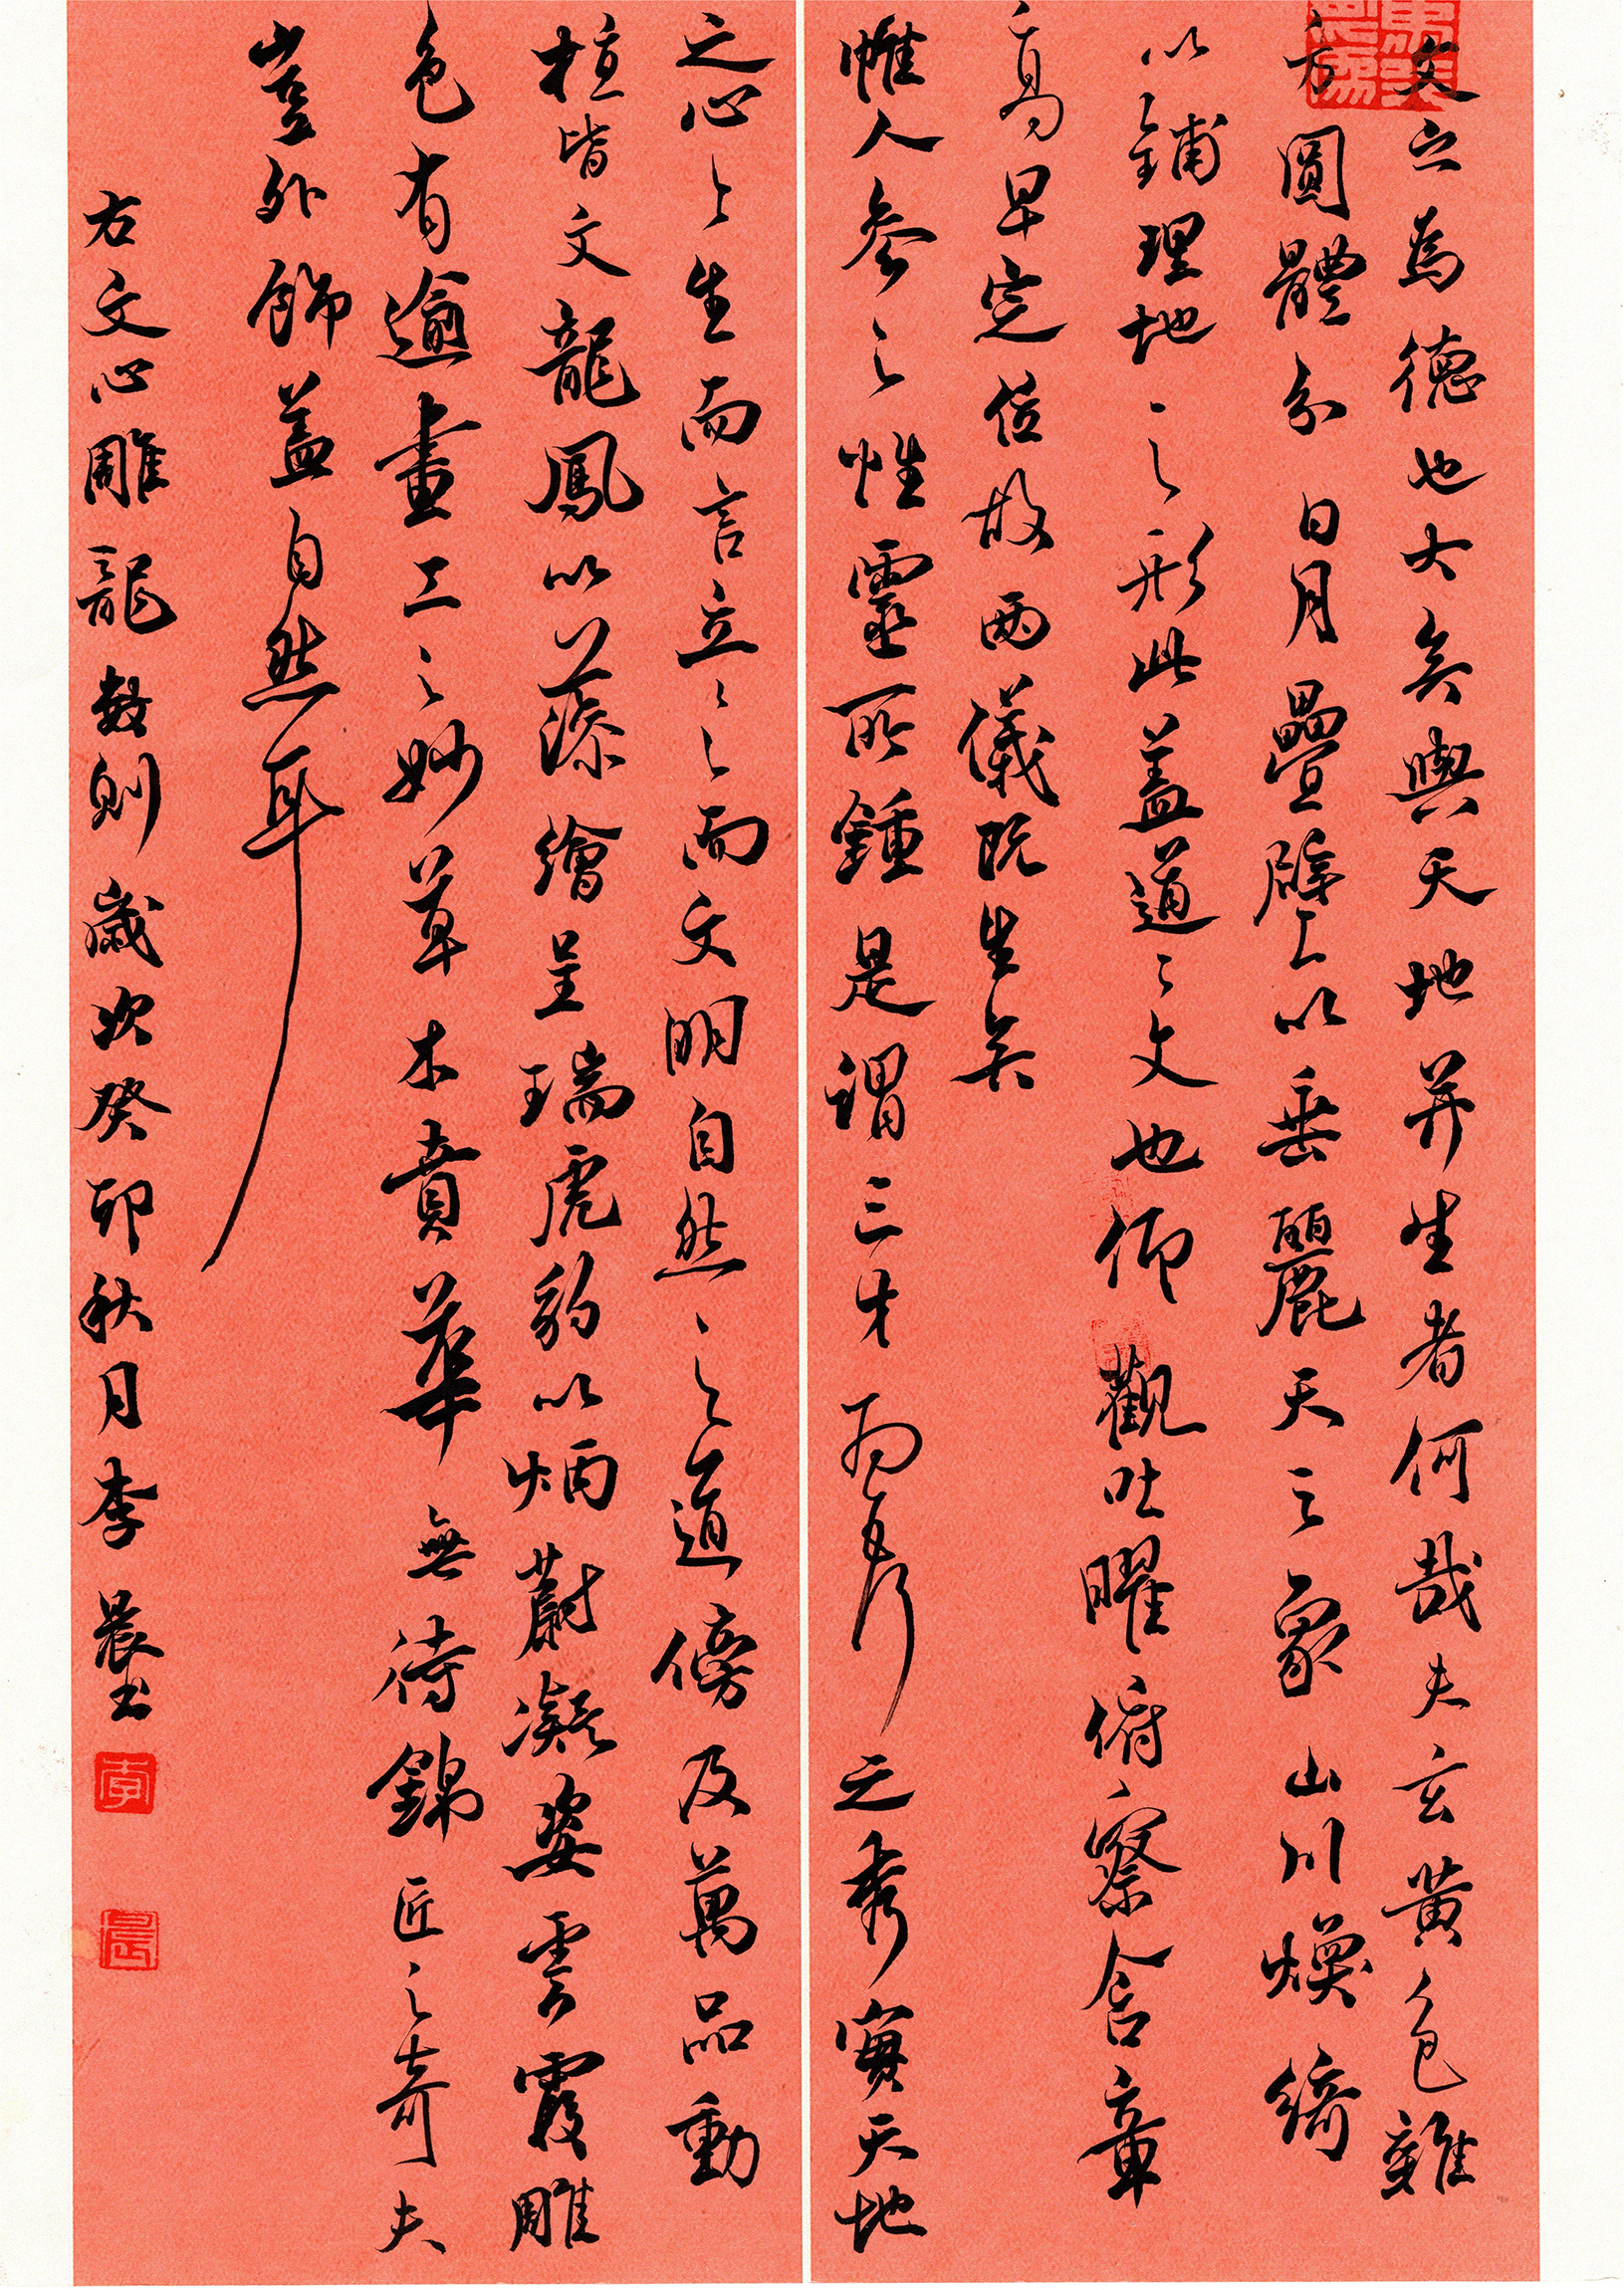 文之為德也大矣與天地并生者何哉夫玄黃色雜
方圓體分日月疊璧以垂麗天之象山川煥綺
以鋪理地之形此蓋道之文也仰觀吐曜俯察含章
高卑定位故兩儀既生矣
惟人參之性靈所鍾是謂三才為五行之秀實天地
之心〻生而言立〻〻而文明自然之道傍及萬品動
植皆文龍鳳以藻繪呈瑞虎豹以炳蔚凝姿雲霞雕
色有逾畫工之妙草木賁華無待錦匠之奇夫
豈外飾蓋自然耳
右文心雕龍數則歲次癸卯秋月李晨書
李
晨